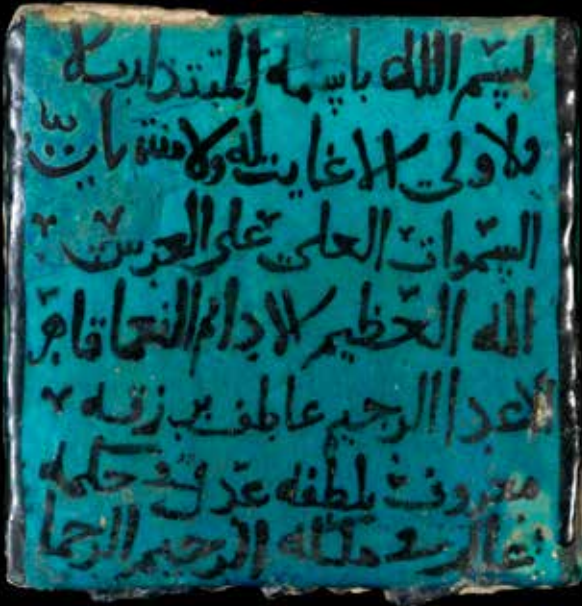 بسم الله باسمه المبتدا رب الا
ولا ولى لا غايت له ولا منتها
السموات العلى على العرش
الله العظيم الا دائم النعما قاهر
الاعدا الرحيم عاطف برزقه
معروف بلطفه عدل في حكمه
عالم في ملكه الرحيم الرحما